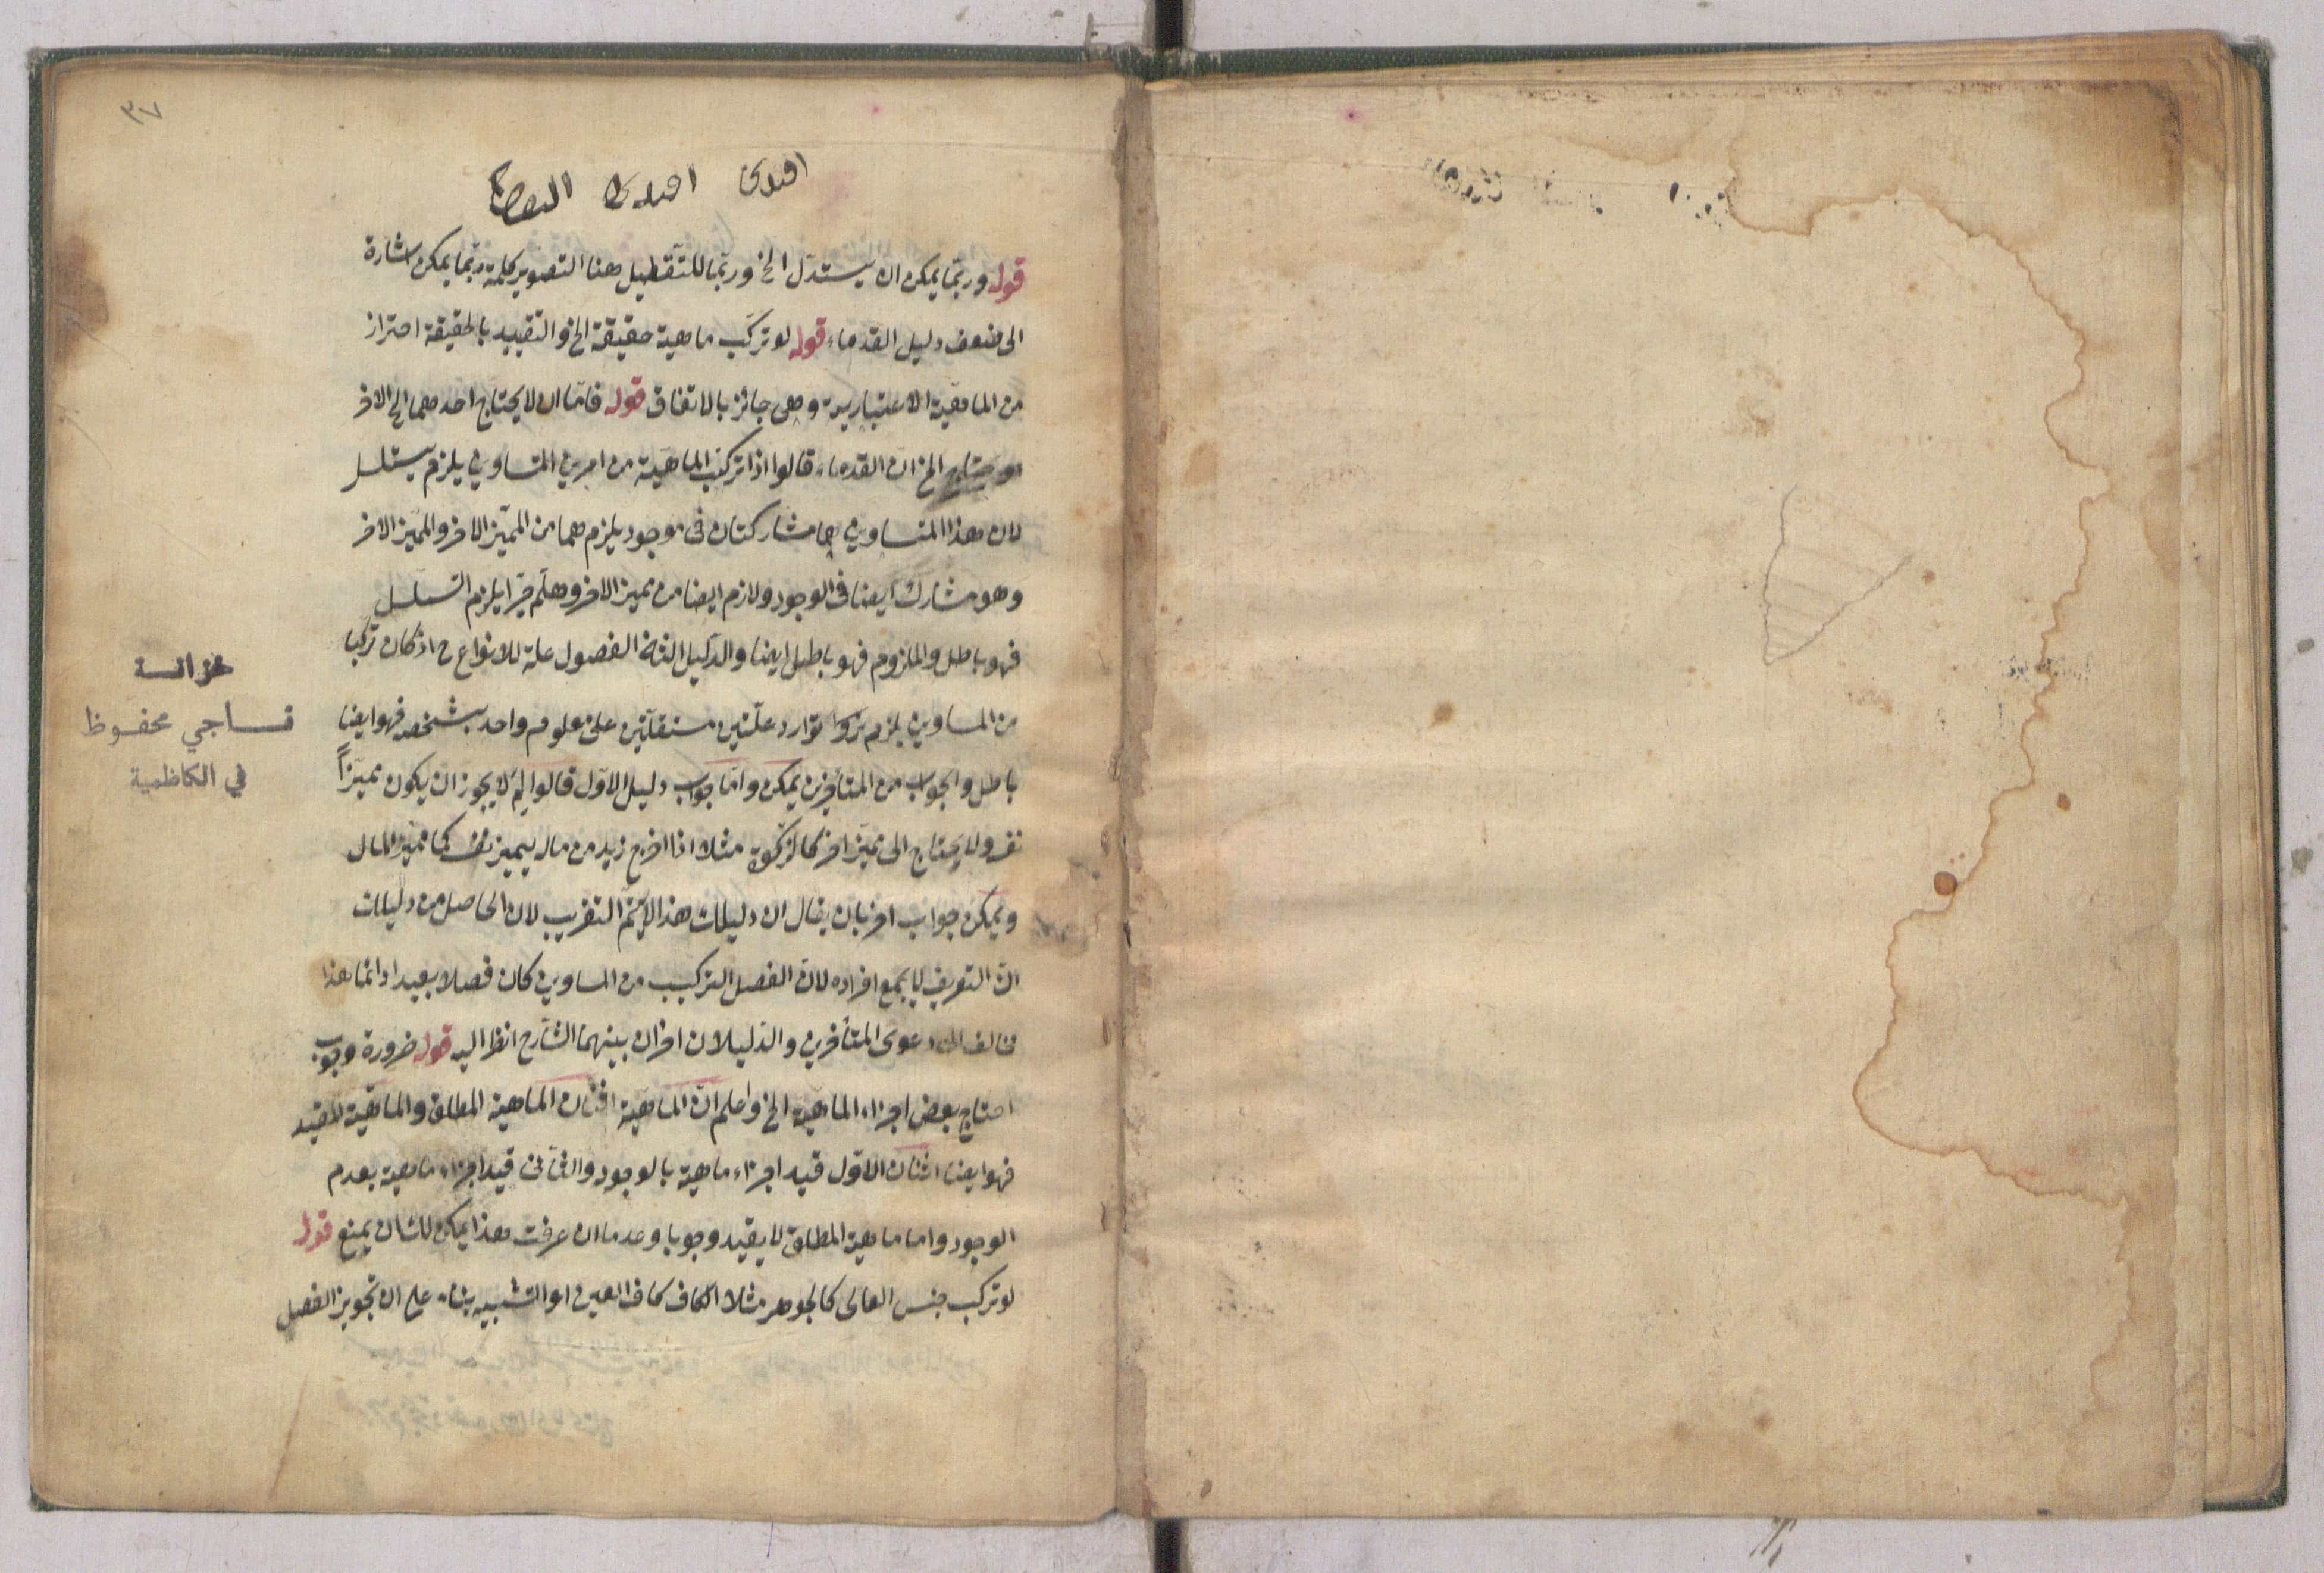 ٣٧
افندى افندى
قوله وربّما يمكن ان يستدلّ الخ وربّما للتقليل هنا التصوير كلمة ربّما يمكن اشارة
الى ضعف دليل القدماء قوله لو تركّب ماهية حقيقة الخ والتقييد بالحقيقة احتراز
من الماهيّة الاعتبارية وهى جائز بالاتفاق قوله فامّا ان لا يحتاج احدهما الى الاخر
الخ انّ القدماء قالوا اذا تركّب الماهيّة من امرين المتساوين يلزم تسلسل
لان هذا المتساوين مشاركتان فى وجود يلزم هما من المميّز الاخر والمميّز الاخر
وهو مشارك ايضا فى الوجود ولازم ايضا من مميز الاخر وهلّم جرّا يلزم التسلسل
فهو باطل والملزوم فهو باطل ايضا والدّليل الفصول علة للانواع ح اذ كان تركّبا
من المساوين يلزم توارد علّتين مستقلّتين على معلوم واحد بشخصه فهو ايضا
باطل والجواب من المتأخرين يمكن وامّا جواب دليل الاوّل قالوا لِمَ لا يجوز ان يكون مميّزاً
ولا يحتاج الى مميّز اخر كالزكوة مثلا اذا اخرج زيد من ماله يميز نفسه كما مميّز المال
ويمكن جواب اخر بان يقال ان دليلك هذا لا يتمّ التقريب لان الحاصل من دليلك
انّ التعريف لا يجمع افراده لانّ الفصل التركيب من المساوين كان فصلا بعيدا وانّما هذا
مخالف الى دعوى المتأخرين والدّليلان اخران بينهما الشّارح انظر اليه قوله ضرورة وجوب
احتاج بعض اجزاء الماهيّة الخ واعلم انّ الماهيّة اثنان الماهية المطلق والماهيّة المقيد
فهو ايضا اثنان الاوّل قيد اجزاء ماهية بالوجود والثّانى قيد اجزاء ماهية بعدم
الوجود واما ماهية المطلق لا يقيد وجوبا وعدما ان عرفت هذا يمكن لك ان يمنع قوله
لو تركب جنس العالى كالجوهر مثلا الكاف كاف العين او التشبيه بناء على ان تجويز الفصل
خزانة
ناجي محفوظ
في الكاظمية